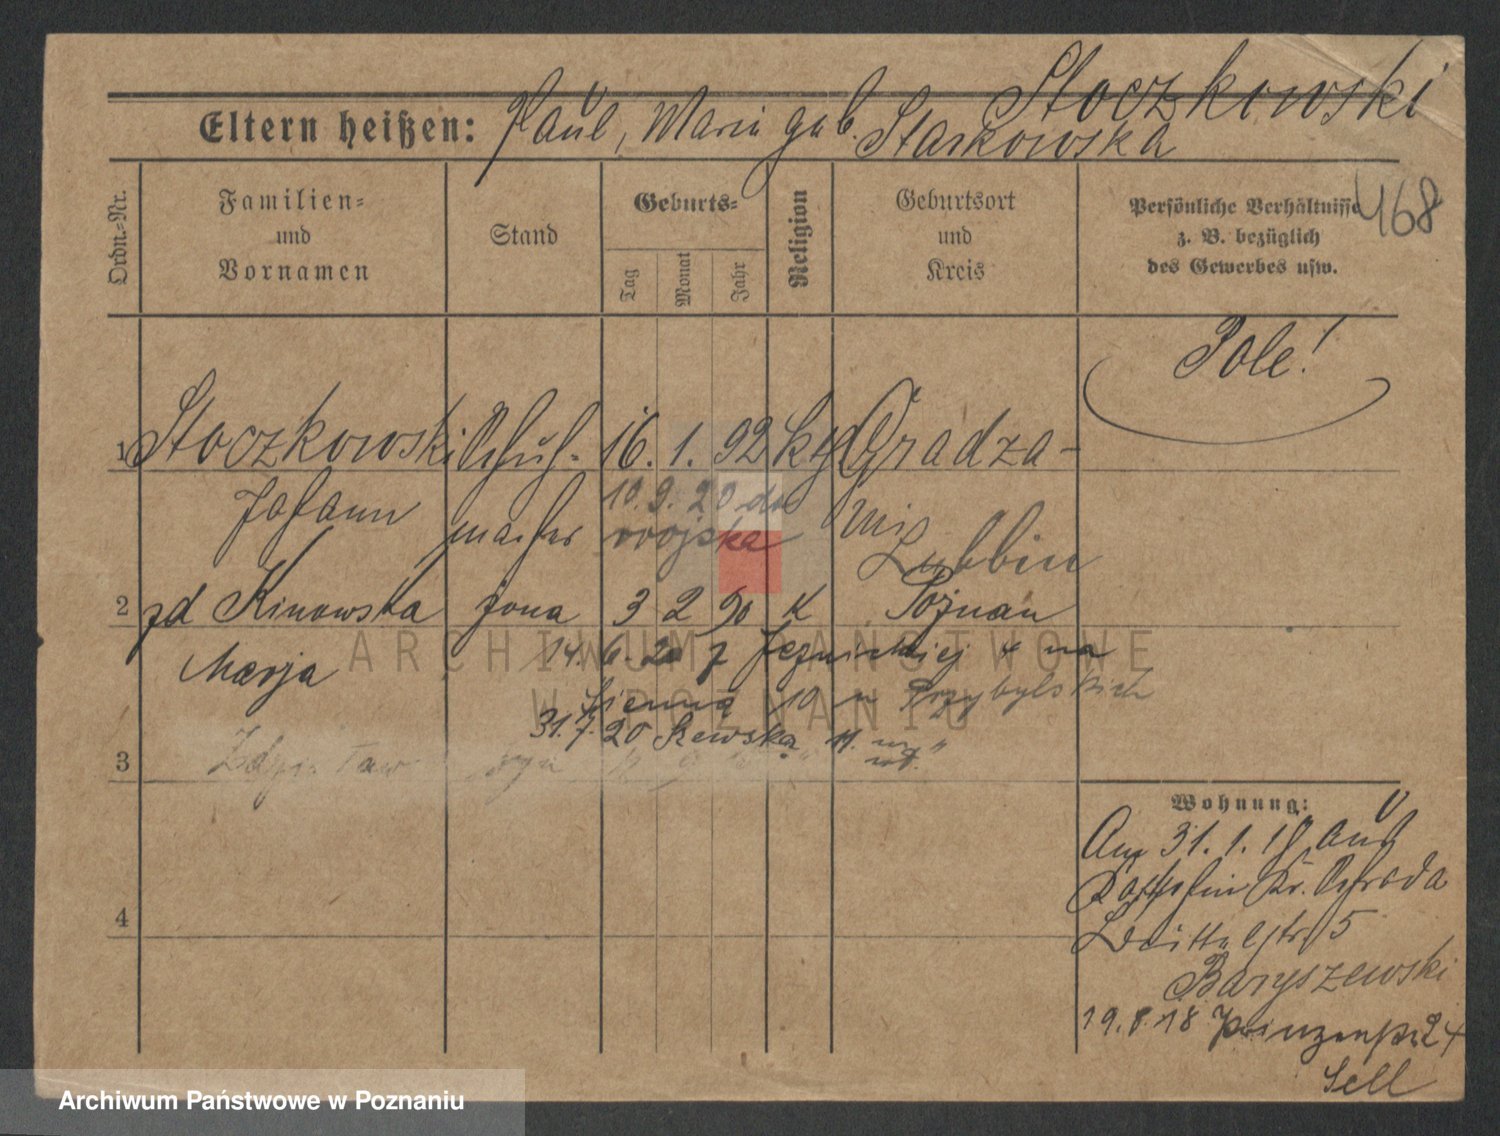 Stoczkowski
Eltern heißen: Paul, Maria geb. Starkowska
468
Ordn.=Nr.
Familien=
und
Vornamen
Stand
Geburts=
Tag
Monat
Jahr
Religion
Geburtsort
und
Kreis
Persönliche Verhältnisse
z. B. bezüglich
des Gewerbes usw.
Pole!
1 Stoczkowski Schuh- 16. 1. 92 kth Gradza-
Johann macher 10. 9. 20 do wojska
Lubbin
2 zd Kinowska żona 3 2 90 K Poznan
Marja 14. 6. 20 z Jeznickiej 4 na
Sienna 10 u Przybylskich
31. 7. 20 Szewska 11.
3 Zdzisław
4
Wohnung:
Am 31. 1. 18 aus
Kr. Schroda
5
Baryszewski
19. 8. 18 Prinzenstr. 24
Sell
ARCHIWUM PAŃSTWOWE
W POZNANIU
Archiwum Państwowe w Poznaniu